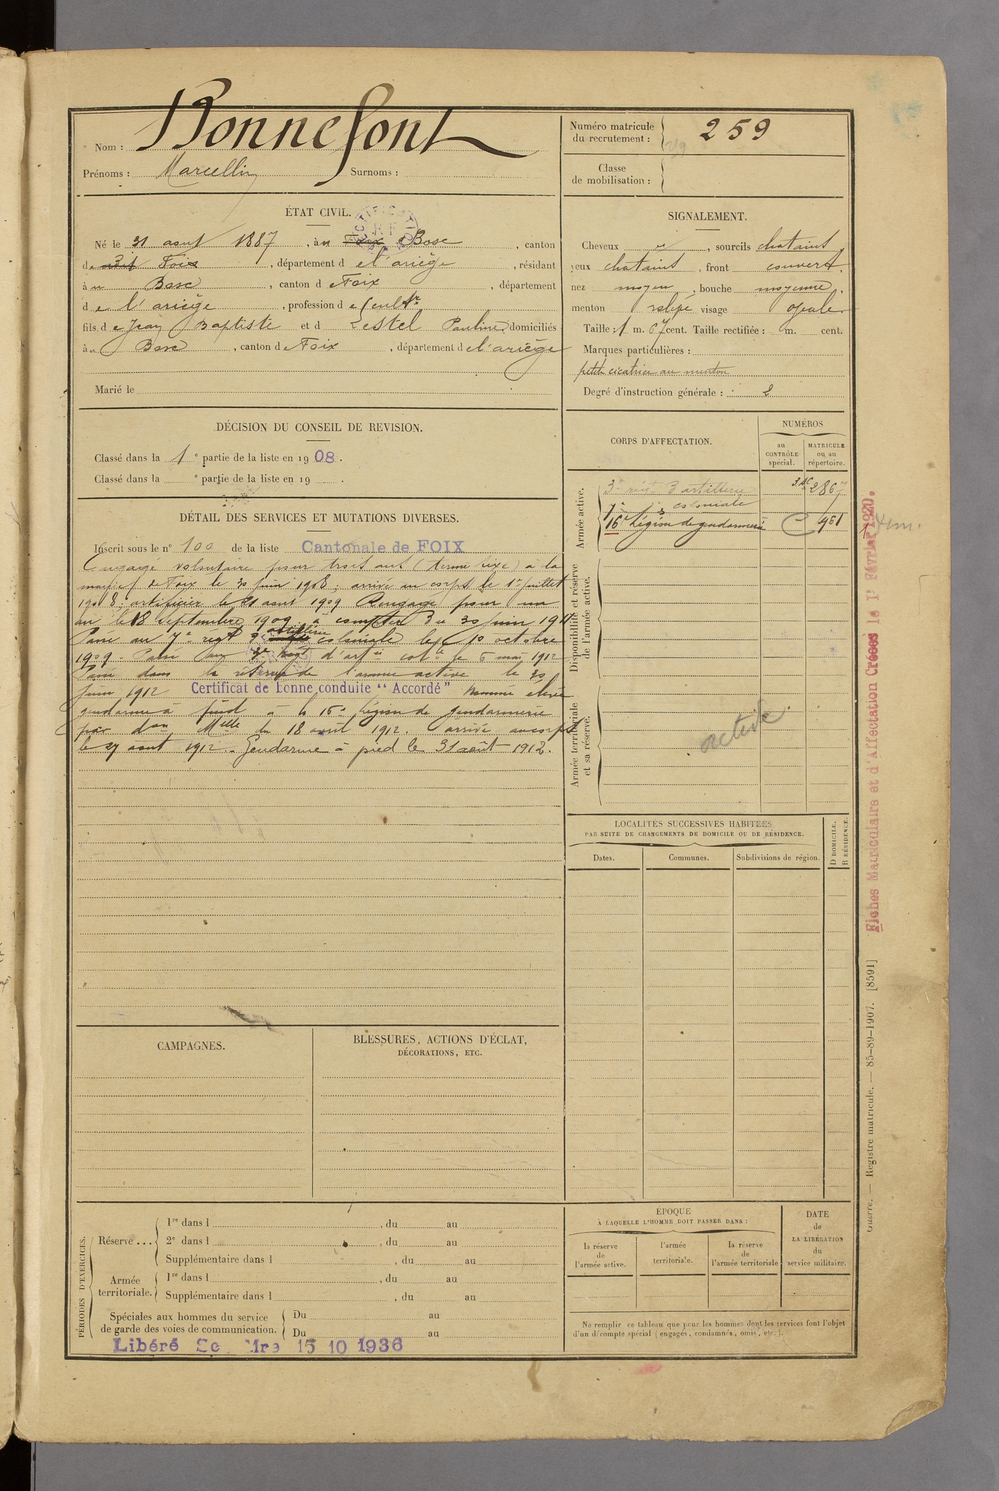 Nom : Bonnefont
Prénoms : Marcellin Surnoms :
Numéro matricule du recrutement : 259
Classe de mobilisation :
ÉTAT CIVIL.
Né le 31 août 1887, à Foix Bosc, canton
de Foix, département de l'ariège, résidant
à Bosc, canton de Foix, département
de l'ariège, profession de cultr
fils de Jean Baptiste et de Lestel Pauline, domiciliés
à Bosc, canton de Foix, département de l'ariège
Marié le
SIGNALEMENT.
Cheveux, sourcils chatains
yeux chatains, front couvert
nez moyen, bouche moyenne,
menton visage ovale
Taille : 1 m. 67 cent. Taille rectifiée : m. cent.
Marques particulières :
petite cicatrice au menton
Degré d'instruction générale : 2
DÉCISION DU CONSEIL DE REVISION.
Classé dans la 1e partie de la liste en 1908.
Classé dans la e partie de la liste en 19
DÉTAIL DES SERVICES ET MUTATIONS DIVERSES.
Inscrit sous le n° 100 de la liste Cantonale de FOIX
Engagé volontaire pour trois ans à la
mairie de Foix le 30 juin 1908; arrivé au corps le 1er juillet
1908; artificier le 21 août 1909 Rengagé pour un
an le 18 septembre 1909 à compter du 30 juin 1911
Passé au 7e regt d'artillerie coloniale le 10 octobre
1909. Passé au 3e regt d'artie colle le 6 mai 1912
Passé dans la réserve de l'armée active le 30
juin 1912 Certificat de bonne conduite "Accordé" Nommé élève
gendarme à pied à la 16e légion de gendarmerie
par don Melle du 18 août 1912. arrivé au corps
le 27 août 1912. Gendarme à pied le 31 août 1912.
CORPS D'AFFECTATION.
NUMÉROS
au CONTRÔLE spécial.
MATRICULE ou au répertoire.
Armée active.
3e regt d'artillerie coloniale 2867
16e Légion de gendarmerie 961
Disponibilité et réserve de l'armée active.
Armée territoriale et sa réserve.
active
LOCALITÉS SUCCESSIVES HABITÉES
PAR SUITE DE CHANGEMENTS DE DOMICILE OU DE RÉSIDENCE.
Dates.
Communes.
Subdivisions de région.
D DOMICILE.
R RÉSIDENCE.
CAMPAGNES.
BLESSURES, ACTIONS D'ÉCLAT,
DÉCORATIONS, ETC.
PÉRIODES D'EXERCICES.
Réserve ...
1re dans l , du au
2e dans l , du au
Supplémentaire dans l , du au
Armée territoriale.
1re dans l , du au
Supplémentaire dans l , du au
Spéciales aux hommes du service
de garde des voies de communication.
Du au
Du au
Libéré 15 10 1936
ÉPOQUE
À LAQUELLE L'HOMME DOIT PASSER DANS :
la réserve de l'armée active.
l'armée territoriale.
la réserve de l'armée territoriale
DATE de LA LIBÉRATION du service militaire.
Ne remplir ce tableau que pour les hommes dont les services font l'objet
d'un décompte spécial (engagés, condamnés, omis, etc.).
Fiches Matriculaire et d'Affectation Créées le 1er Février 1920.
Guerre. — Registre matricule. — 85-89-1907. [8591]